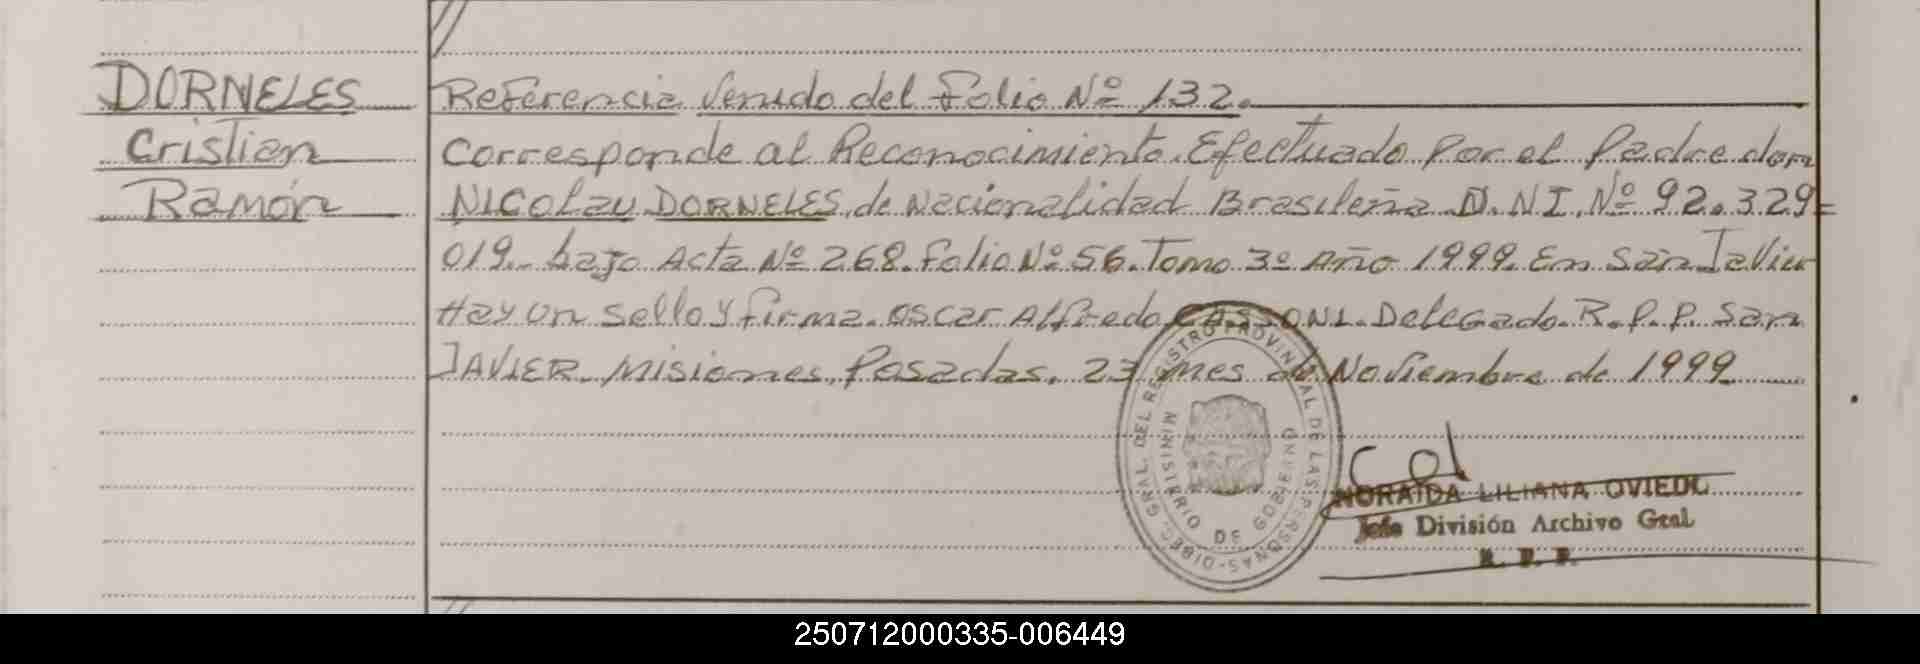 DORNELES
Cristian
Ramón
Referencia Venido del Folio Nº 132.
Corresponde al Reconocimiento Efectuado Por el Padre don
NICOLAU DORNELES, de Nacionalidad Brasileña D.N.I. Nº 92.329=
019.. bajo Acta Nº 268. Folio Nº 56. Tomo 3º Año 1999. En San Javier
Hay un Sello y firma. Oscar Alfredo Delegado. R.P.P. San
JAVIER. Misiones, Posadas, 23 mes de Noviembre de 1999
DIREC. GRAL. DEL REGISTRO PROVINCIAL DE LAS PERSONAS
MINISTERIO DE GOBIERNO
NORAIDA LILIANA OVIEDO
Jefe División Archivo Gral
R. P. P.
250712000335-006449